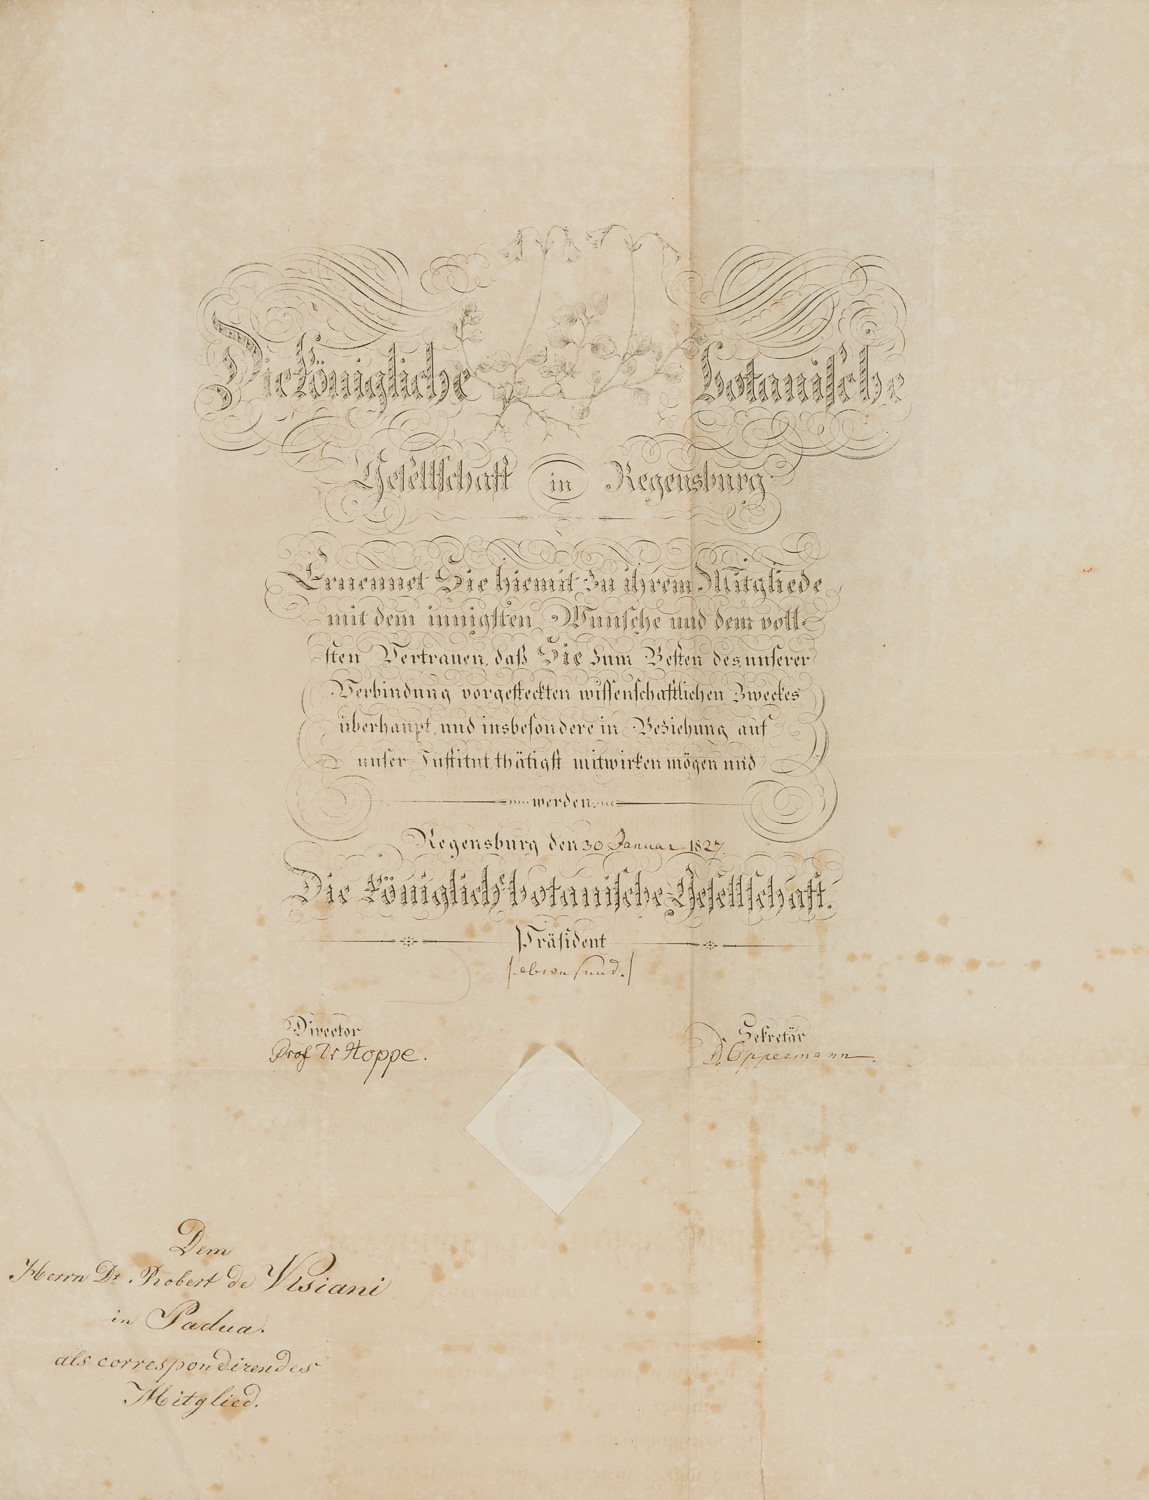 Die königliche botanische
Gesellschaft in Regensburg
Ernennet Sie hiemit zu ihrem Mitgliede
mit dem innigsten Wunsche und dem voll-
sten Vertrauen, daß Sie zum Besten des unserer
Verbindung vorgesteckten wissenschaftlichen Zweckes
überhaupt, und insbesondere in Beziehung auf
unser Institut, thätigst mitwirken mögen und
werden.
Regensburg den 30 Januar 1827.
Die königlich botanische Gesellschaft.
Präsident
(abwesend.)
Director
Prof Dr Hoppe.
Sekretär
D. Oppermann
Dem
Herrn Dr. Robert de Visiani
in Padua.
als correspondirendes
Mitglied.